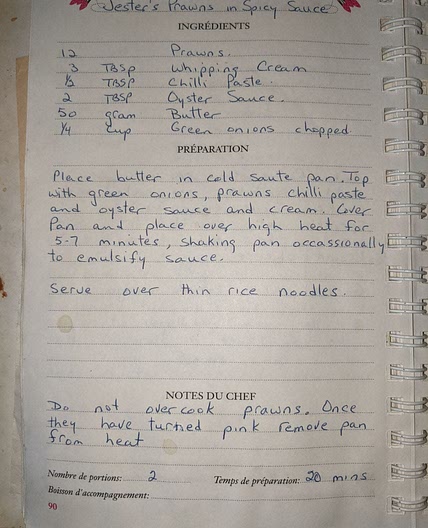 Jester's Prawns in Spicy Sauce
INGRÉDIENTS
12 Prawns.
3 TBSP Whipping Cream
1/2 TBSP Chilli Paste
2 TBSP Oyster Sauce.
50 gram Butter
1/4 cup Green onions chopped
PRÉPARATION
Place butter in cold saute pan. Top
with green onions, prawns chilli paste
and oyster sauce and cream. Cover
Pan and place over high heat for
5-7 minutes, shaking pan occassionally
to emulsify sauce.
Serve over thin rice noodles.
NOTES DU CHEF
Do not overcook prawns. Once
they have turned pink remove pan
from heat
Nombre de portions: 2 Temps de préparation: 20 mins
Boisson d'accompagnement:
90